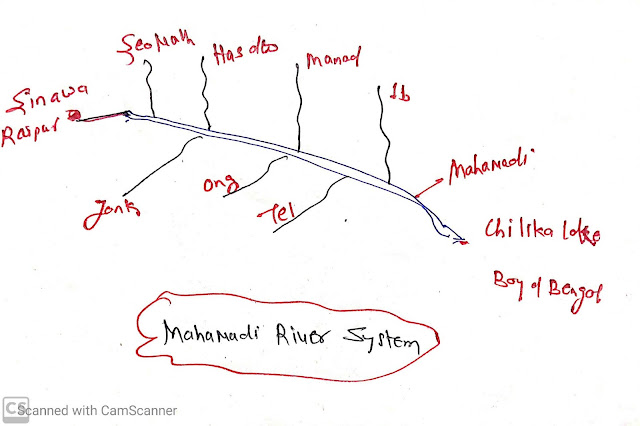 Seonath
Hasdeo
Manad
Ib
Sinawa
Raipur
Mahanadi
Jonk
Ong
Tel
Chilika lake
Bay of Bengal
Mahanadi River System
CS Scanned with CamScanner